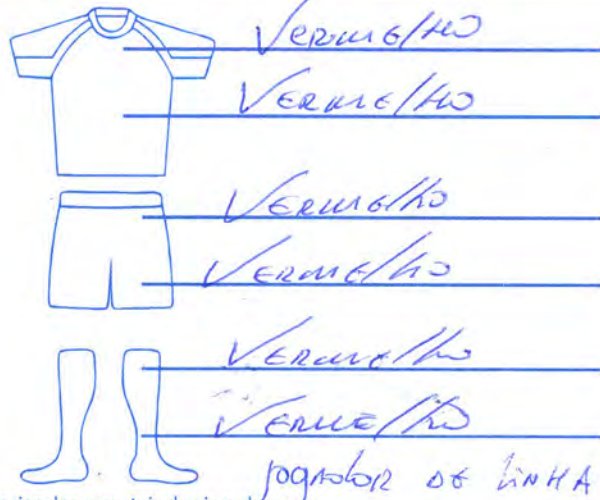 Vermelho
Vermelho
Vermelho
Vermelho
Vermelho
Vermelho
jogador DE LINHA